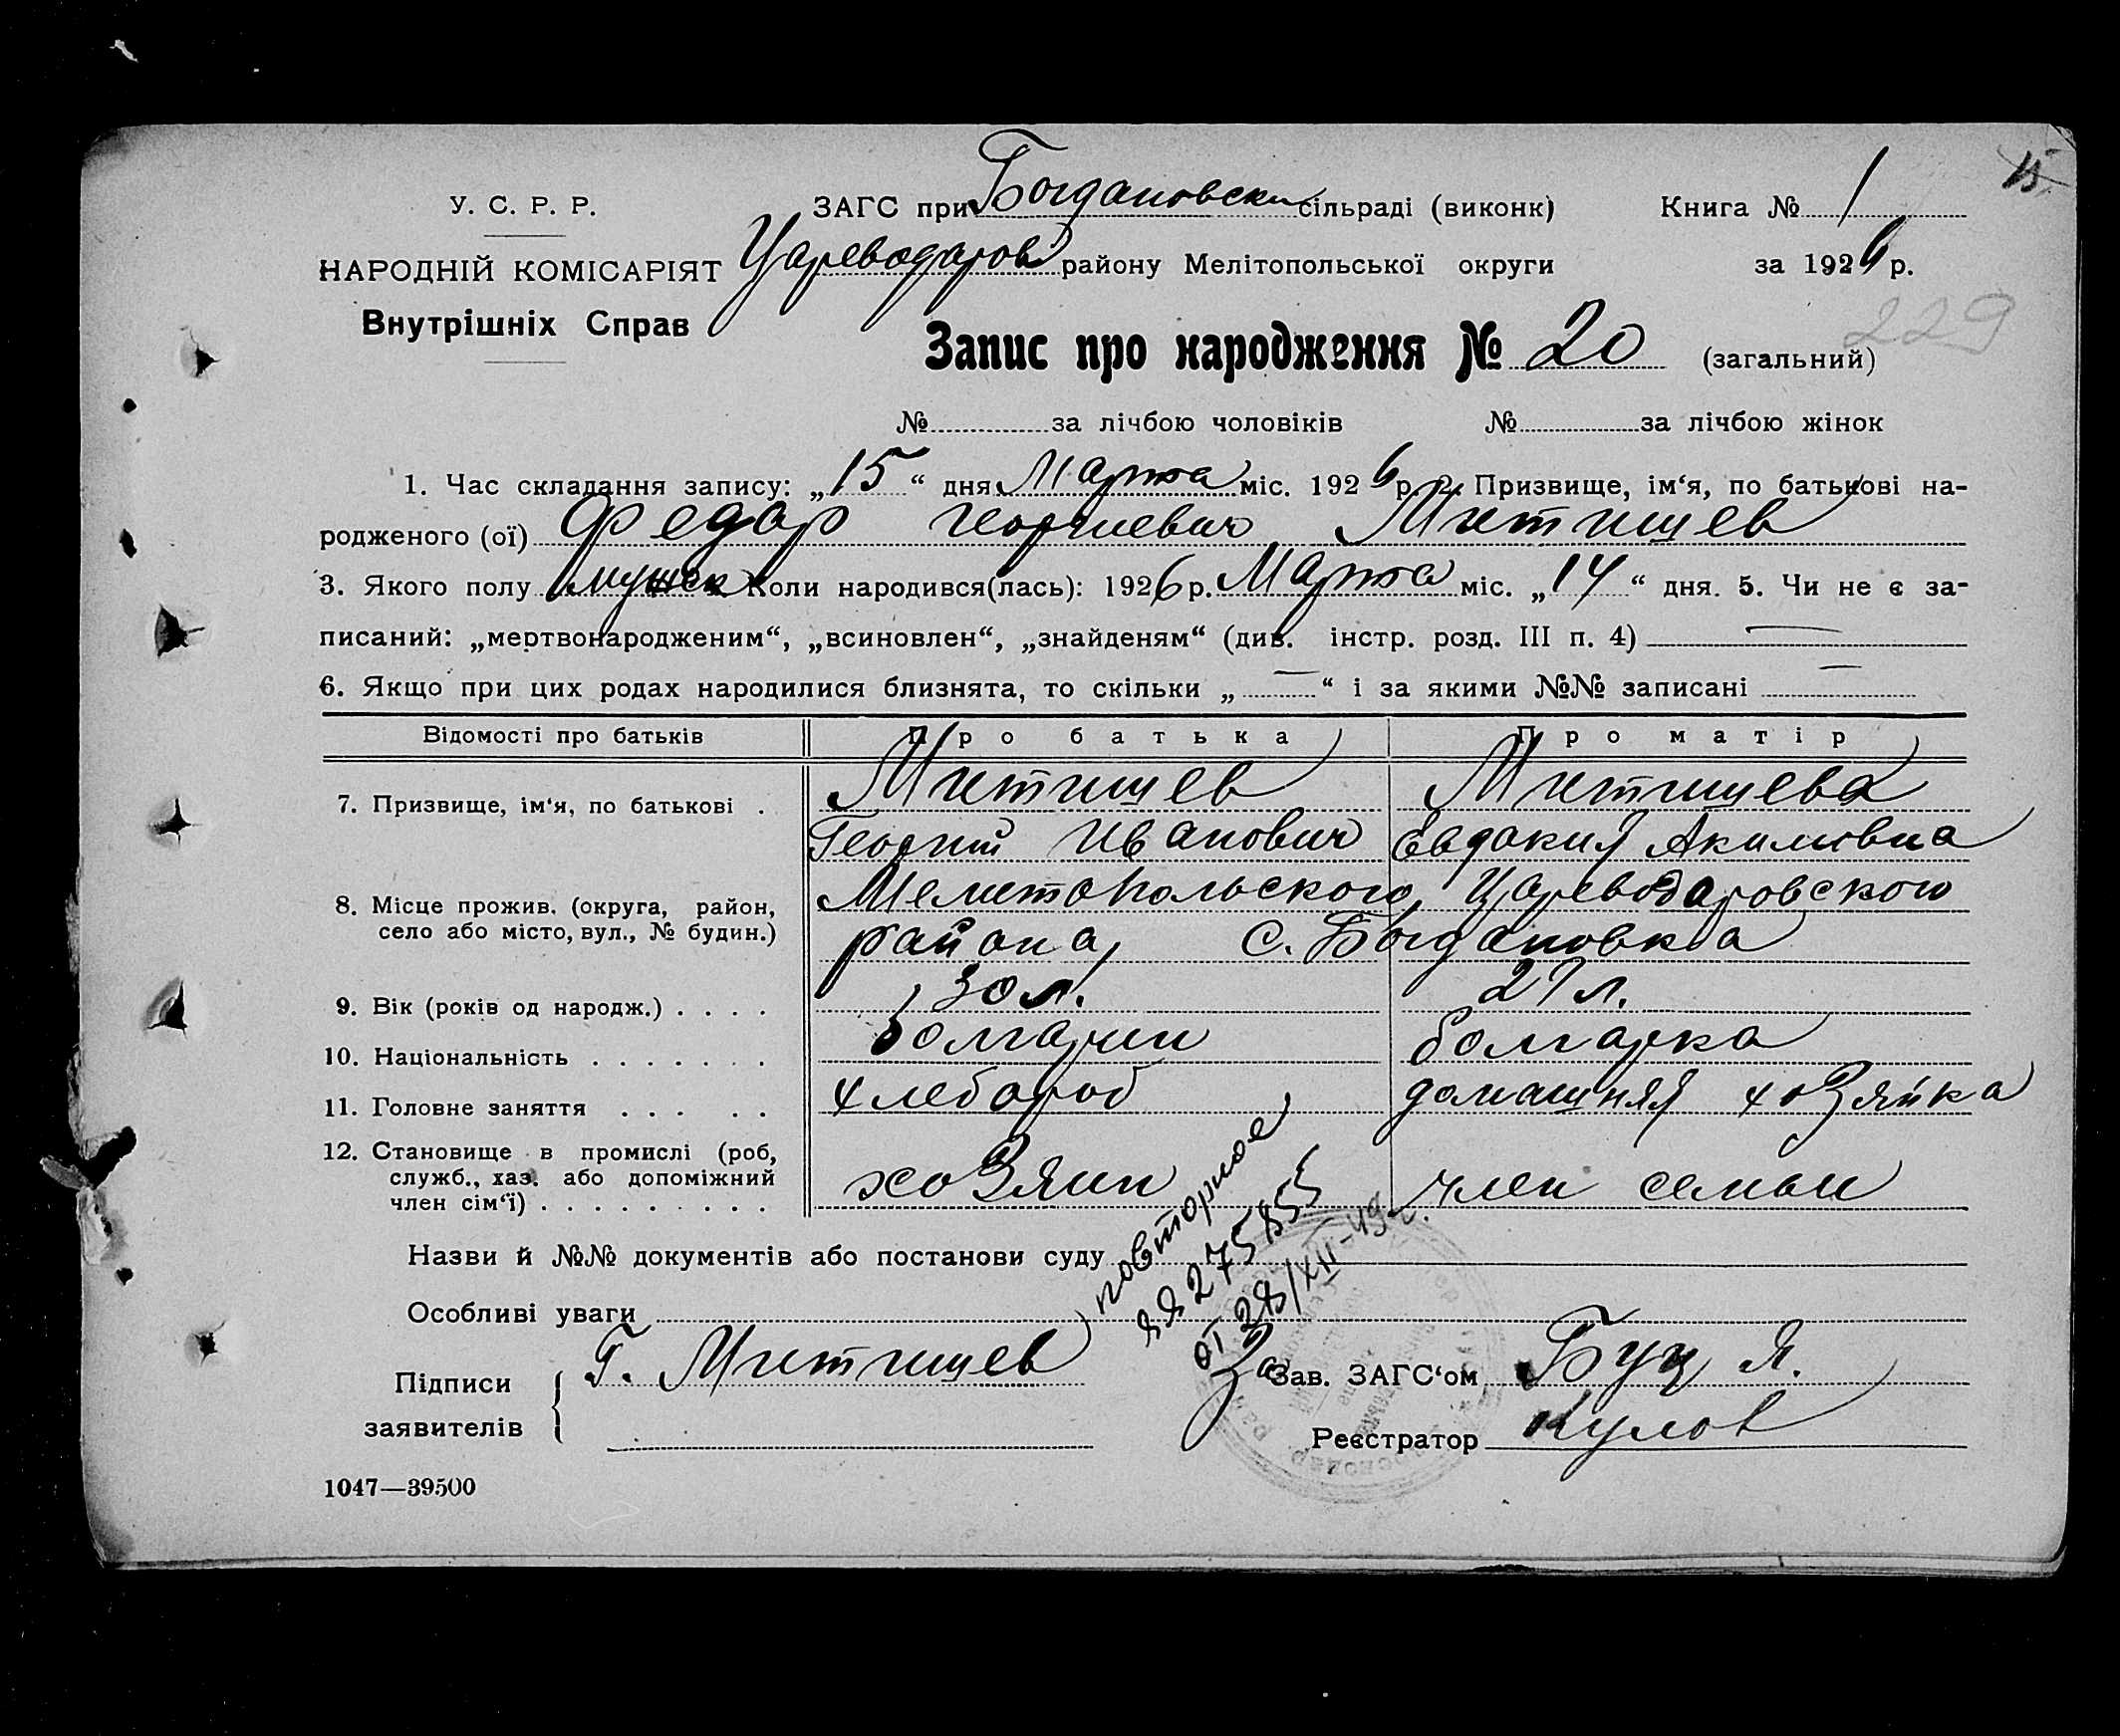 15
У. С. Р. Р. ЗАГС при Богдановски сільраді (виконк) Книга № 1
НАРОДНІЙ КОМІСАРІЯТ Цареводаров району Мелітопольської округи за 1926 р.
Внутрішніх Справ
229
Запис про народження № 20 (загальний)
№ за лічбою чоловіків № за лічбою жінок
1. Час складання запису: „15“ дня Марта міс. 1926 р. 2. Призвище, ім‘я, по батькові на-
родженого (ої) Федор Георгиевич Митищев
3. Якого полу мужск Коли народився(лась): 1926 р. Марта міс. „14“ дня. 5. Чи не є за-
писаний: „мертвонародженим“, „всиновлен“, „знайденям“ (див. інстр. розд. III п. 4) —
6. Якщо при цих родах народилися близнята, то скільки „—“ і за якими №№ записані —
Відомості про батьків Про батька Про матір
7. Призвище, ім‘я, по батькові . Митищев Митищева
Георгий Иванович Евдокия Акимовна
8. Місце прожив. (округа, район, Мелитопольского, Цареводаровского
село або місто, вул., № будин.) района, с. Богдановка
9. Вік (років од народж.) . . . . 30 л. 27 л.
10. Національність . . . . . . . болгарин болгарка
11. Головне заняття . . . . . хлебороб домашняя хозяйка
12. Становище в промислі (роб,
служб., хаз. або допоміжний
член сім‘ї) . . . . . . . . . хозяин член семьи
Назви й №№ документів або постанови суду
повторное
ЯЯ 275855
от 28/XII-49 г.
Особливі уваги
Підписи
заявителів
Г. Митищев
За Зав. ЗАГС‘ом Буц Я.
Реєстратор Кулов
1047—39500